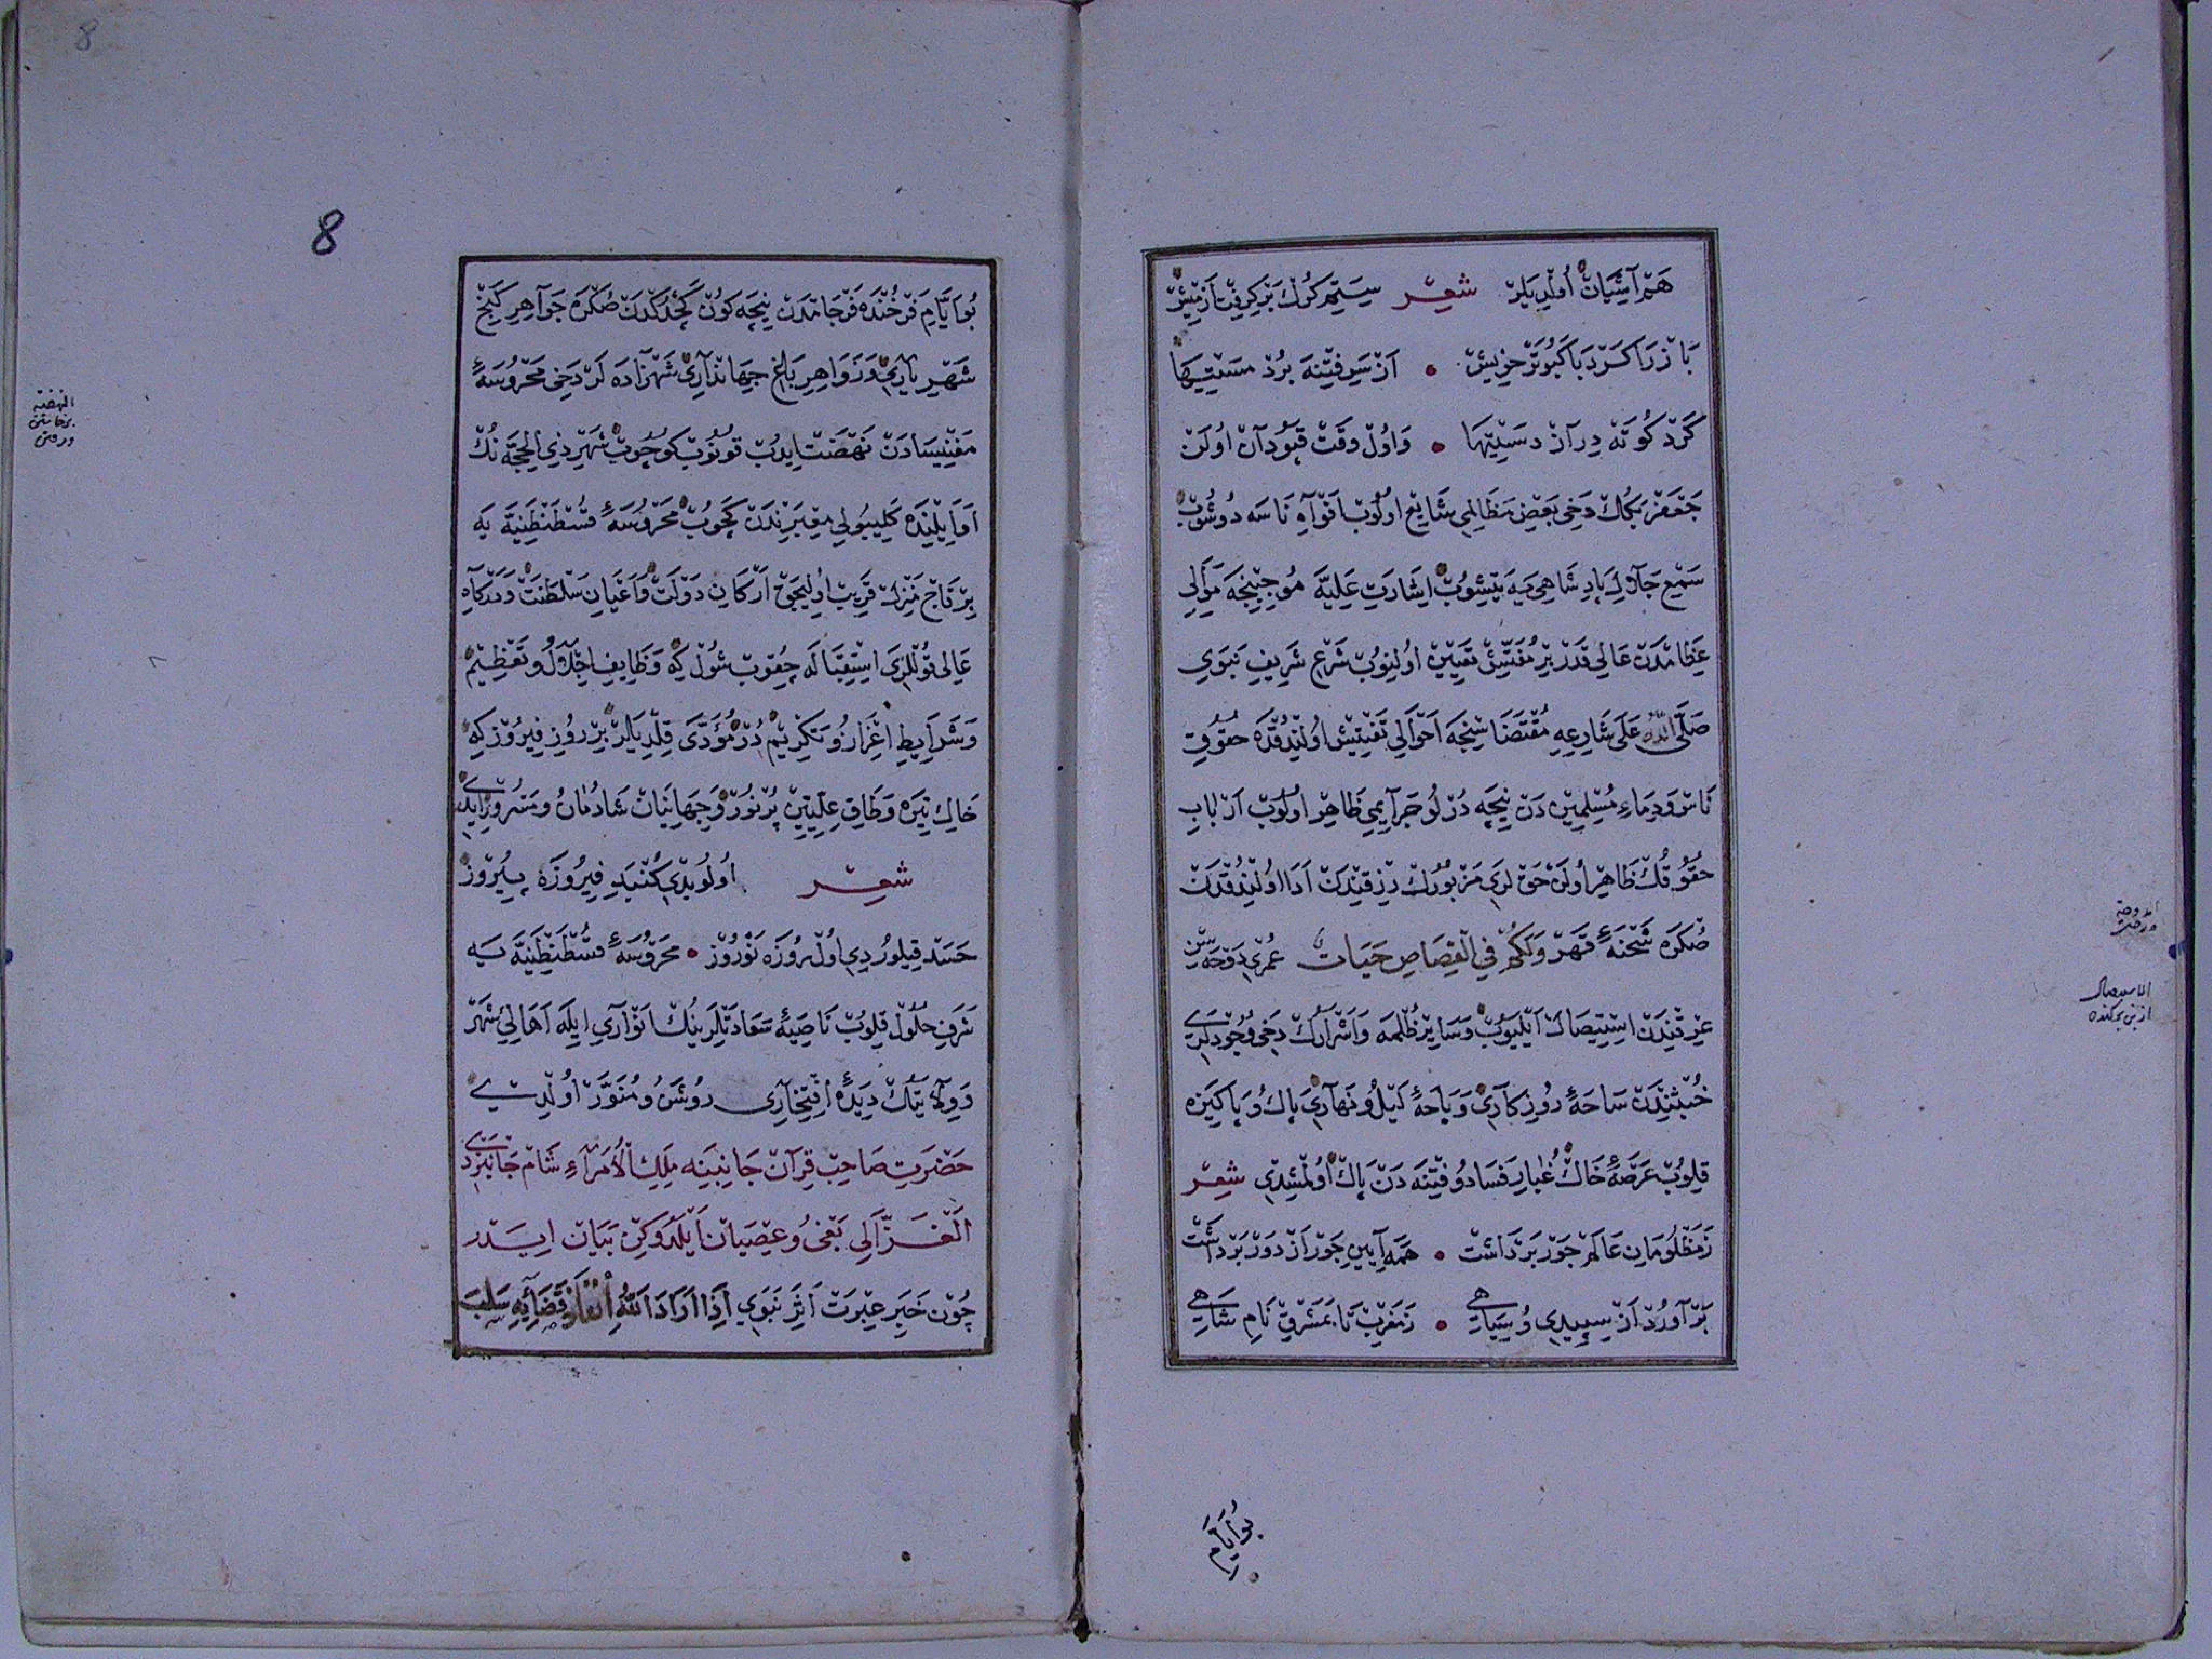 هم آشیان اولدیلر شعر ستم کرک بر کرفت از میش
باز را کرد با کبوتر خویش • از سر فتنه برد مستیها
کرد کوته دراز دستیها • و اول وقت قپودان اولن
جعفر بکك دخی بعض مظالمی شایع اولوب افواه ناسه دوشوب
سمع جلال پادشاهی یه یتیشوب اشارت علیه موجبنجه موالی
عظامدن عالی قدر بر مفتش تعیین اولنوب شرع شریف نبوی
صلی الله علی شارعه مقتضاسنجه احوالی تفتیش اولندقده حقوق
ناس و دماء مسلمین دن نیچه درلو جرایمی ظاهر اولوب ارباب
حقوقك ظاهر اولن حق لری مزبورك رزقندن ادا اولندقدن
صکره شحنهٔ قهر ولکم فی القصاص حیات عمری دوحه سن
عرقندن استیصال ایلیوب و سایر ظلمه و اشرارك دخی وجودلری
خبثندن ساحهٔ روزکاری و باحهٔ لیل و نهاری پاك و پاکیزه
قلوب عرصهٔ خاك غبار فساد و فتنه دن پاك اولمشدی شعر
ز مظلومان عالم جور برداشت • همه آیین جور از دور برداشت
بر آورد از سپیدی و سیاهی • ز مغرب تا بمشرق نام شاهی
بو ایام
الدوحة
درخت
الاستیصال
از بن برکندن
8
8
بو ایام فرخنده فرجامدن نیچه کون کچدکدن صکره جواهر کنج
شهریاری و زواهر بلخ جهانداری شهزاده لر دخی محروسهٔ
مغنیسادن نهضت ایدب قونوب کوچوب شهر ذی الحجه نك
اوایلنده کلیبولی معبرندن کچوب محروسهٔ قسطنطنیه یه
بر قاج منزل قریب اولیجق ارکان دولت و اعیان سلطنت و درکاه
عالی قوللری استقباله چقوب شول که وظایف اجلال و تعظیم
و شرایط اعزاز و تکریم در مؤدی قلدیلر بر روز فیروز که
خاك تیره وطاق علیین پر نور و جهانیان شادمان و مسرور ایدی
شعر اولوبدی کنبد فیروزه پیروز
حسد قیلوردی اول روزه نوروز • محروسهٔ قسطنطنیه یه
شرف حلول قلوب ناصیهٔ سعادتلرینك انواری ایله اهالی شهر
و ولایتك دیدهٔ افتخاری روشن و منور اولدی
حضرت صاحب قران جانبینه ملك الامراء شام جانبردی
الغزالی بغی و عصیان ایلدوکن بیان ایدر
چون خبر عبرت اثر نبوی اذا اراد الله انفاذ قضائه سلب
النهضة
برخاستن
ورفتن